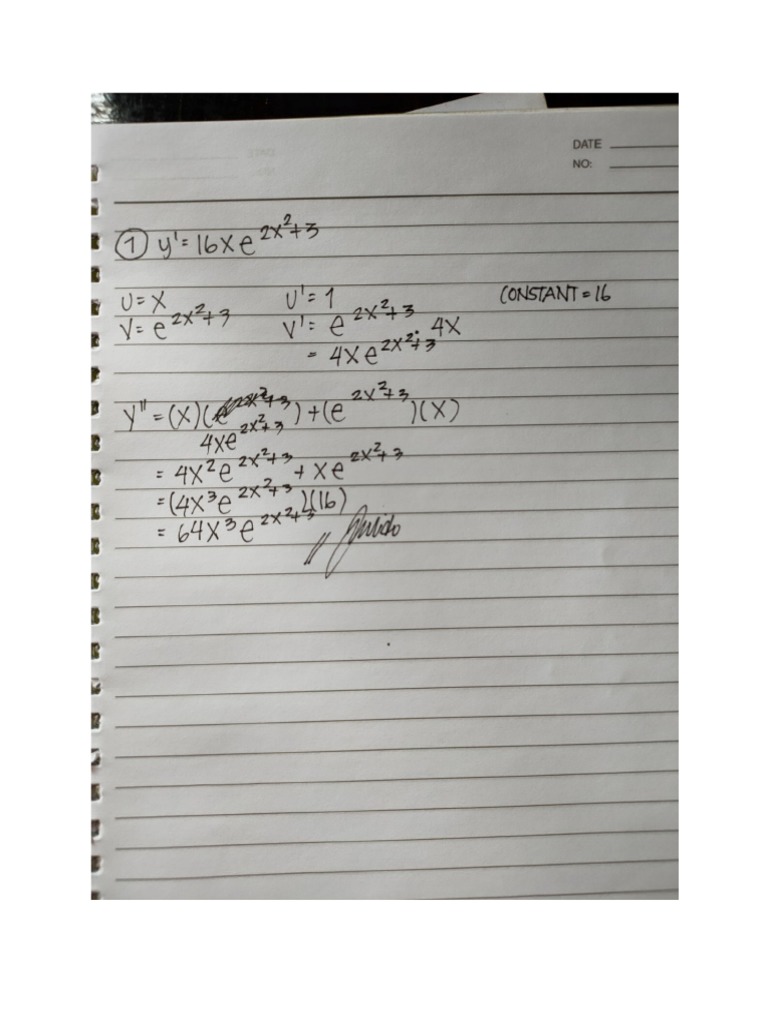 DATE
NO:
① y' = 16xe^{2x²+3}
U = X U' = 1 CONSTANT = 16
V = e^{2x²+3} V' = e^{2x²+3} · 4X
= 4xe^{2x²+3}
Y'' = (X)( ) + (e^{2x²+3})(X)
4xe^{2x²+3}
= 4x²e^{2x²+3} + xe^{2x²+3}
= (4x³e^{2x²+3})(16)
= 64x³e^{2x²+3} //